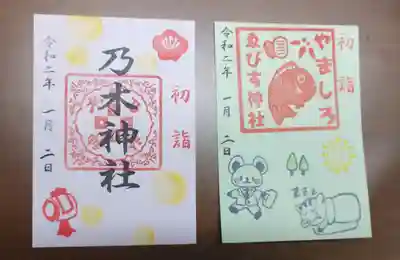 初詣
乃木神社
令和二年 一月 二日
初詣
やましろ
ゑびす神社
令和二年 一月 二日